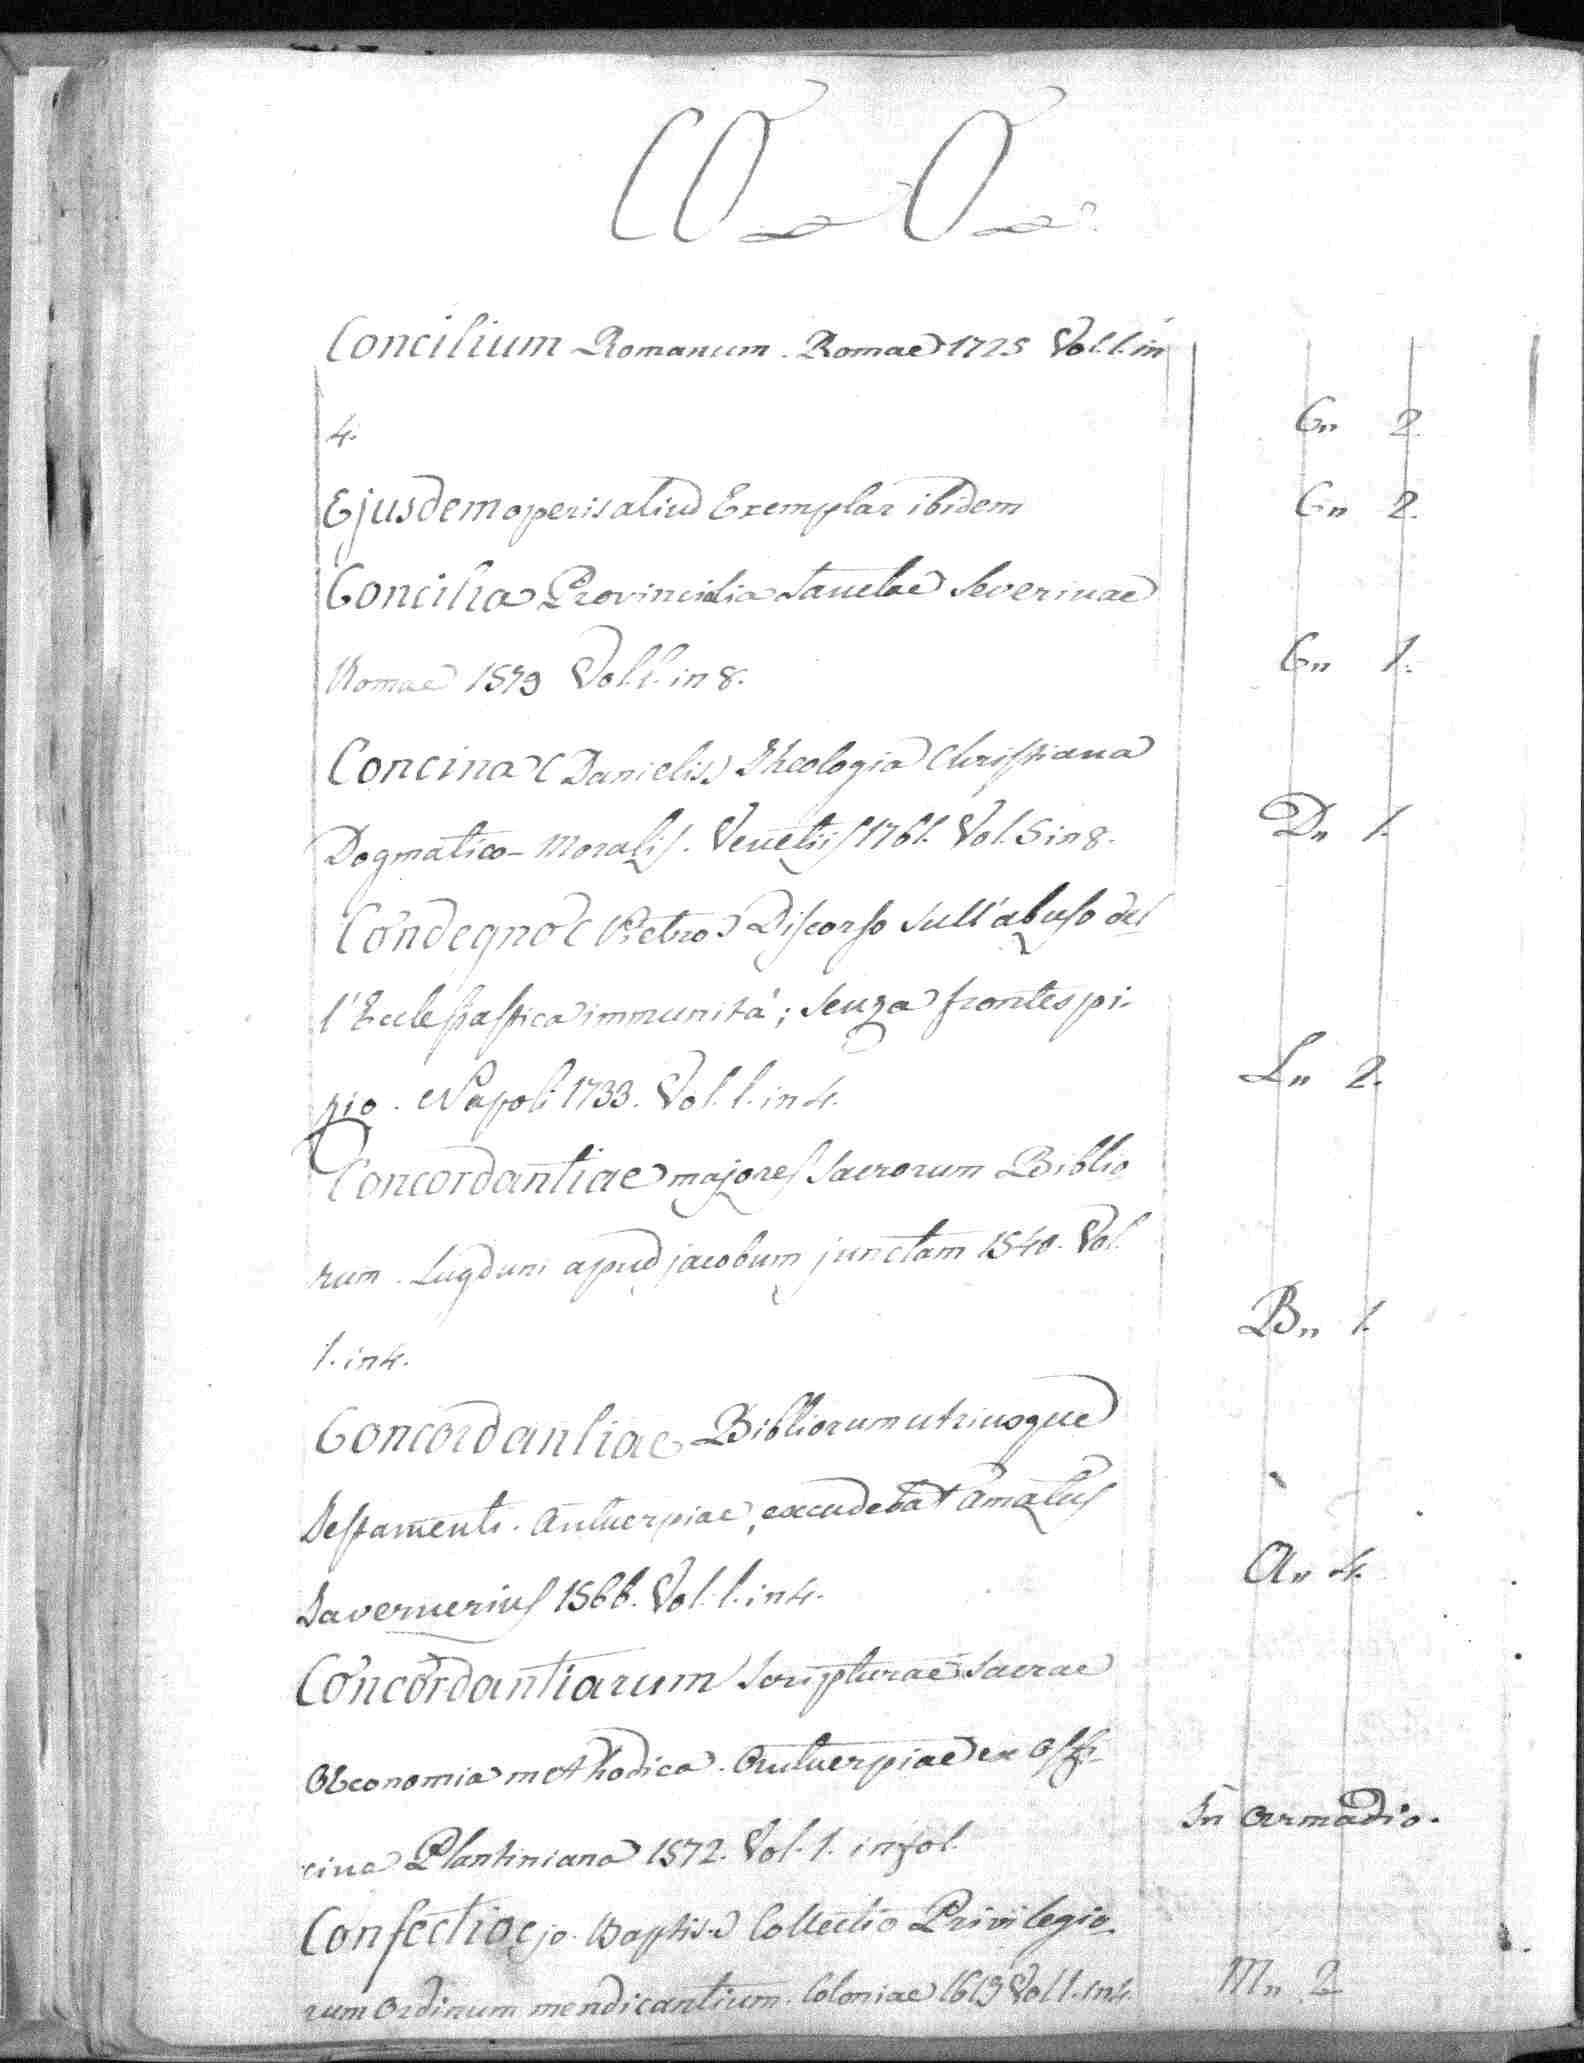 CO O
Concilium Romanum. Romae 1725 Vol. 1. in
4. C" 2.
Ejusdem operis aliud Exemplar ibidem C" 2.
Concilia Provincialia Sanctae Severinae
Romae 1579 Vol. 1. in 8. C" 1.
Concina (Danielis) Theologia Christiana
Dogmatico-Moralis. Venetiis 1761. Vol. 5 in 8. D" 1.
Condegno (Pietro) Discorso sull'abuso del
l'Ecclesiastica immunità; senza frontespi-
zio. Napoli 1733. Vol. 1. in 4. L" 2.
Concordantiae majores sacrorum Biblio
rum. Lugduni apud jacobum junctam 1540. Vol.
1. in 4. B" 1.
Concordantiae Bibliorum utriusque
Testamenti. Antuerpiae, excudebat Amatus
Tavernerius 1566. Vol. 1. in 4. A" 4.
Concordantiarum Scripturae Sacrae
Oeconomia methodica. Antuerpiae ex Offi-
cina Plantiniana 1572. Vol. 1. in fol. In Armadio.
Confectio (jo. Baptis.) Collectio Privilegio-
rum Ordinum mendicantium. Coloniae 1619 Vol 1. in 4. M" 2